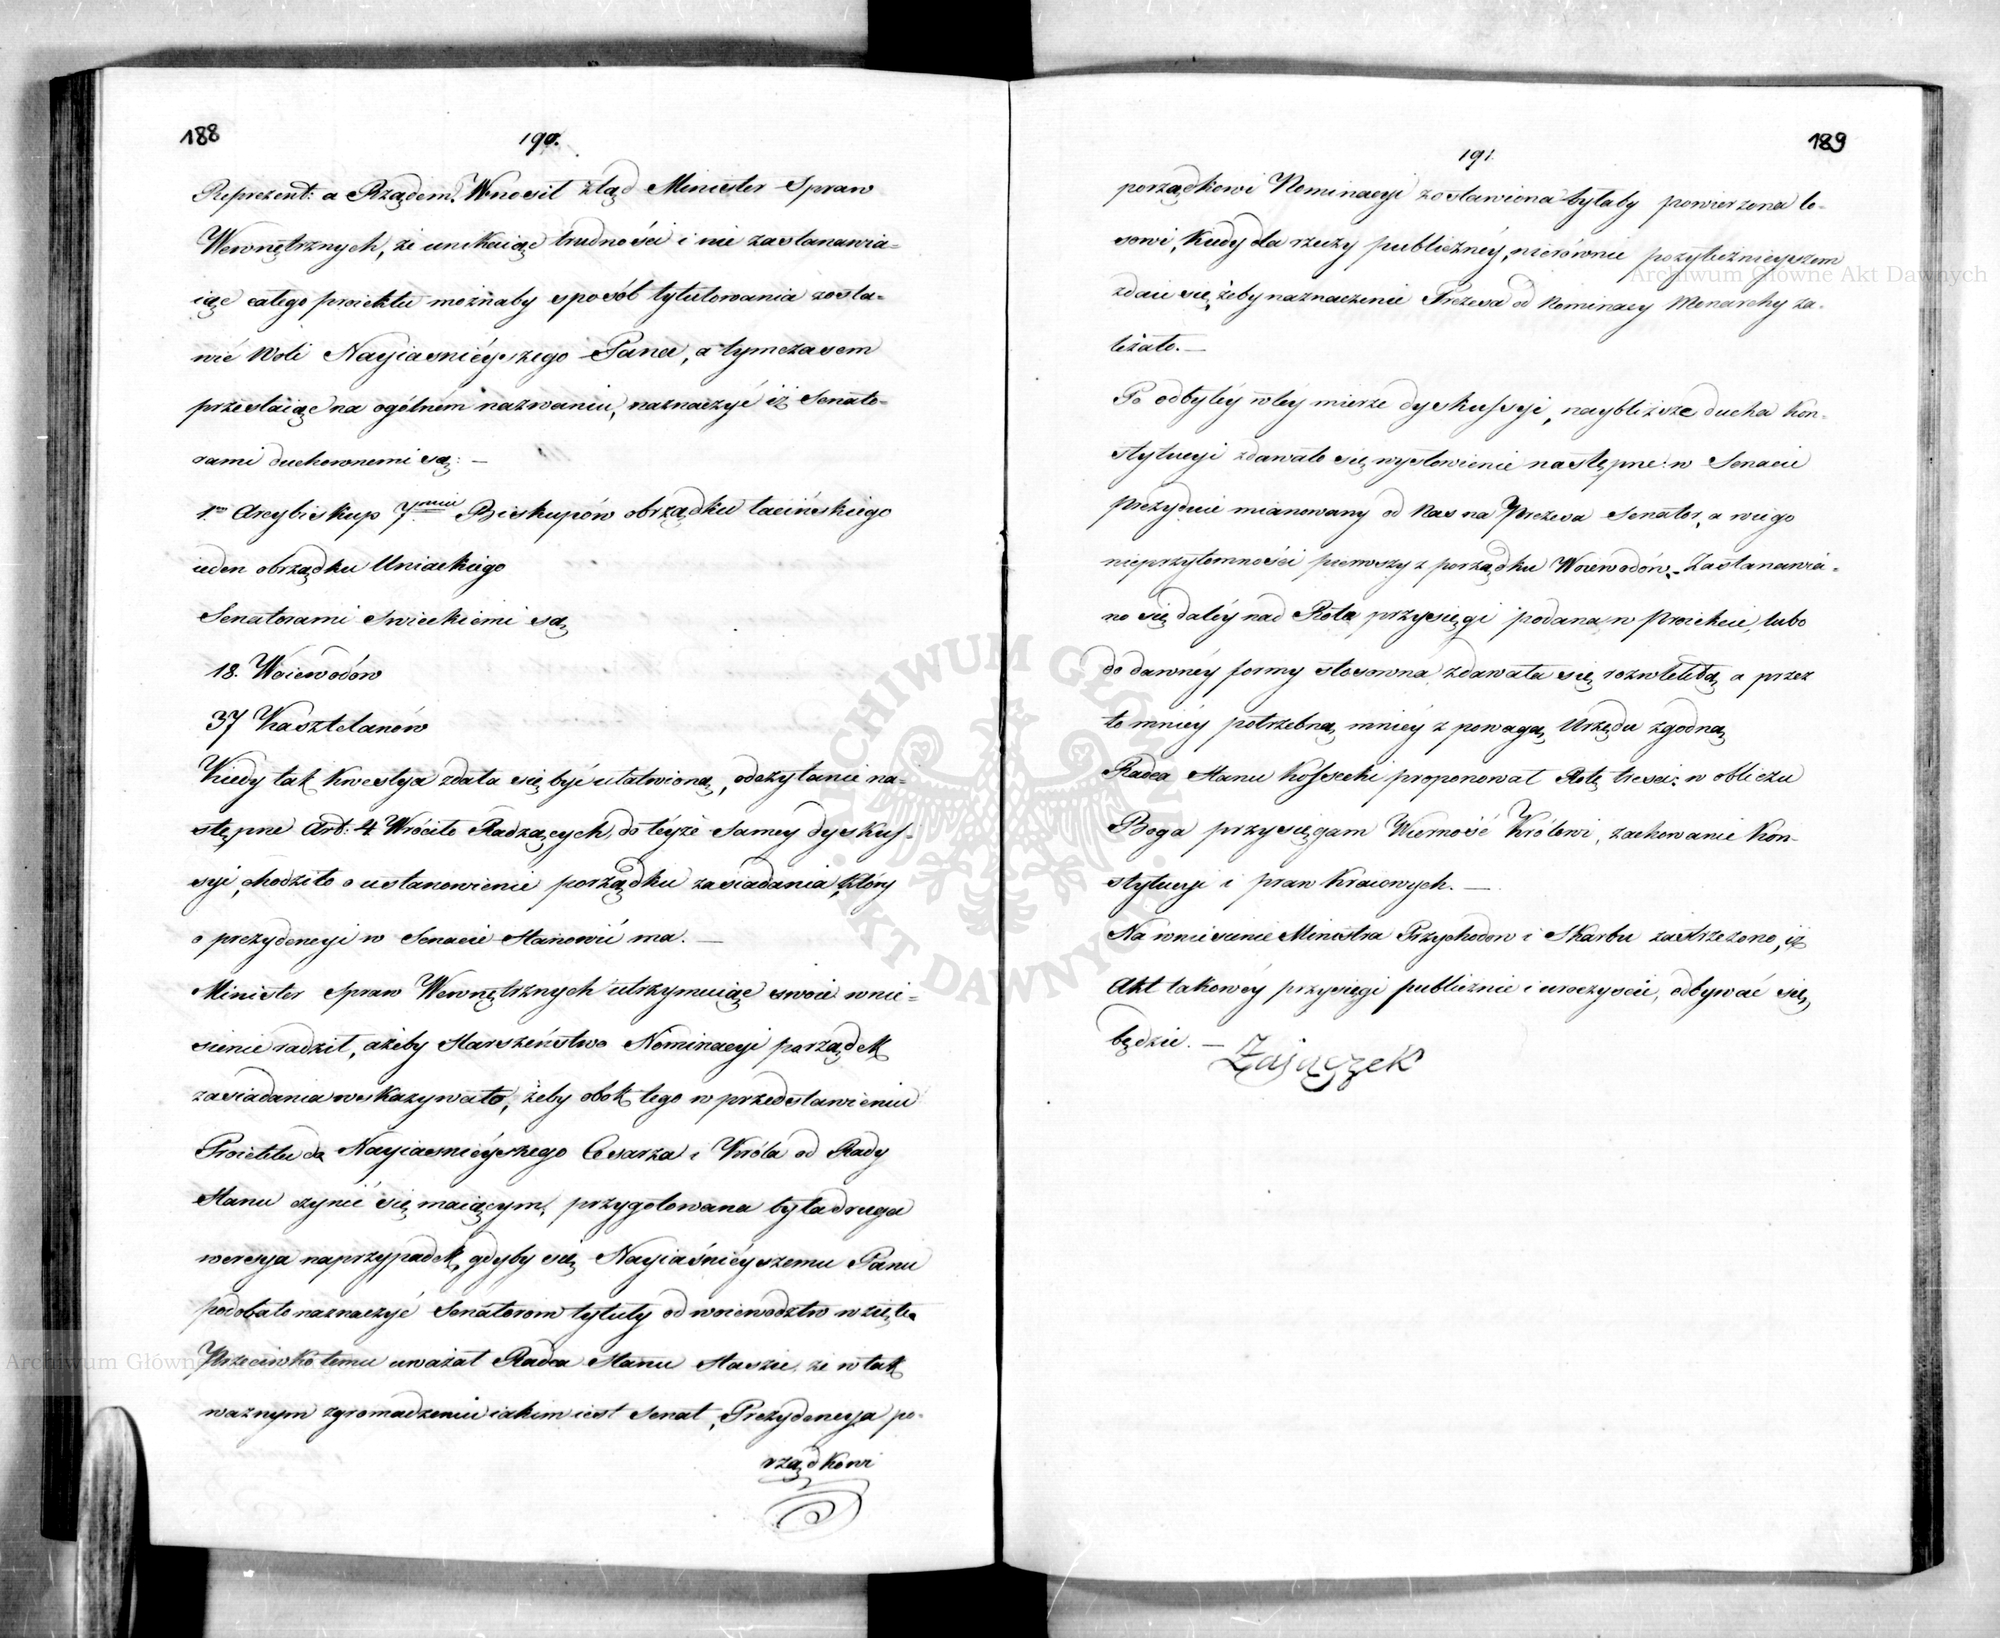 188
190.
Reprezent: a Rządem. Wnosił ztąd Minister Spraw
Wewnętrznych, że unikaiąc trudności i nie zastanawia-
iąc całego proiektu możnaby sposób tytułowania zosta-
wić Woli Nayiaśnieyszego Pana, a tymczasem
przestaiąc na ogólnem nazwaniu, naznaczyć iż Senato-
rami duchownemi są: —
1.en Arcybiskup 7miu Biskupów obrządku łacińskiego
ieden obrządku Uniackiego
Senatorami Swieckiemi są
18. Woiewodów
37 Kasztelanów
Kiedy tak kwestya zdała się być ułatwioną, odczytanie na-
stępne Art: 4 Wróciło Radzących do teyże samey dyskus-
syi, chodziło o ustanowienie porządku zasiadania, który
o prezydencyi w Senacie stanowić ma. —
Minister Spraw Wewnętrznych utrzymuiąc swoie wnie-
sienie radził, ażeby starszeństwo Nominacyi porządek
zasiadania wskazywało, żeby obok tego w przedstawieniu
Proiektu do Nayiaśnieyszego Cesarza i Króla od Rady
Stanu czynić się maiącym, przygotowana była druga
wersya na przypadek, gdyby się Nayiaśnieyszemu Panu
podobało naznaczyć Senatorom tytuły od woiewodztw wzięte.
Przeciwko temu uważał Radca Stanu Staszic, że w tak
ważnym zgromadzeniu iakim iest Senat, Prezydencya po-
rządkowi
189
191.
porządkowi Nominacyi zostawiona byłaby powierzona lo-
sowi, kiedy dla rzeczy publiczney, nierównie pożytecznieyszem
zdaie się, żeby naznaczenie Prezesa od Nominacy Monarchy za-
leżało. —
Po odbytey w tey mierze dyskussyi, naybliższe ducha Kon-
stytucyi zdawało się wysłowienie następne: w Senacie
prezyduie mianowany od Nas na Prezesa Senator, a w iego
nieprzytomności pierwszy z porządku Woiewodów. Zastanawia-
no się daléy nad Rotą przysięgi podaną w Proiekcie, lubo
do dawnéy formy stosowna zdawała się rozwlekłą, a przez
to mniéy potrzebną, mniéy z powagą Urzędu zgodną
Radca Stanu Kossecki proponował Rotę treści: w obliczu
Boga przysięgam Wierność Królowi, zachowanie Kon-
stytucyi i praw Kraiowych. —
Na wniesienie Ministra Przychodow i Skarbu zastrzeżono, iż
Akt takowéy przysięgi publicznie i uroczyście, odbywać się
będzie. —
Zajączek
Archiwum Główne Akt Dawnych